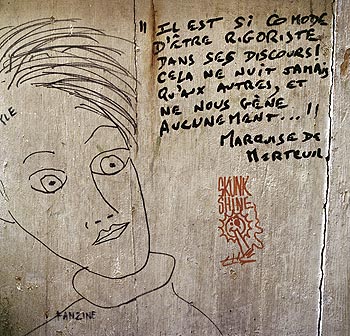 " IL EST SI COMODE
D'ÊTRE RIGORISTE
DANS SES DISCOURS!
CELA NE NUIT JAMAIS
QU'AUX AUTRES, ET
NE NOUS GÊNE
AUCUNEMENT...!!
MARQUISE DE
MERTEUIL.
SKUNK
SHINE
FANZINE